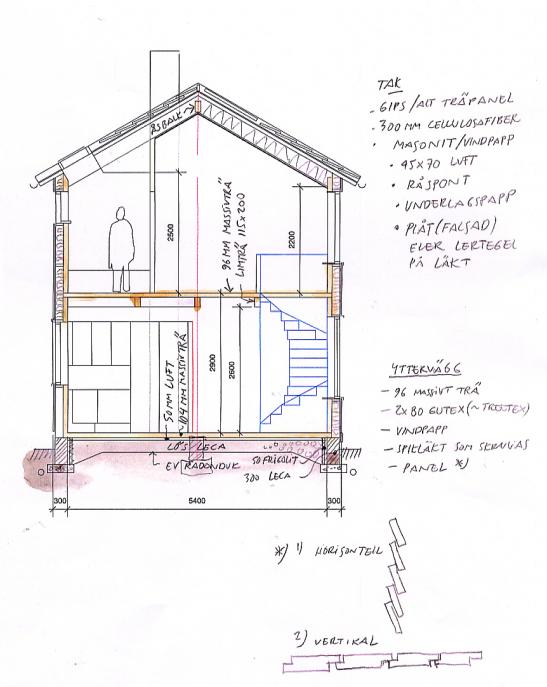 TAK
- GIPS/ALT TRÄPANEL
- 300 MM CELLULOSAFIBER
• MASONIT/VINDPAPP
• 45X70 LUFT
• RÅSPONT
• UNDERLAGSPAPP
• PLÅT (FALSAD)
ELER LERTEGEL
PÅ LÄKT
ÅSBALK
2500
96 MM MASSIVTRÄ
LIMTRÄ 115X200
2200
50 MM LUFT
104 MM MASSIVTRÄ
2900
2600
YTTERVÄGG
- 96 MASSIVT TRÄ
- 2X80 GUTEX (~TRETEX)
- VINDPAPP
- SPIKLÄKT SOM SKRUVAS
- PANEL *)
LÖS LECA
EV RADONDUK
300 LECA
300
5400
300
*) 1) HORISONTELL
2) VERTIKAL